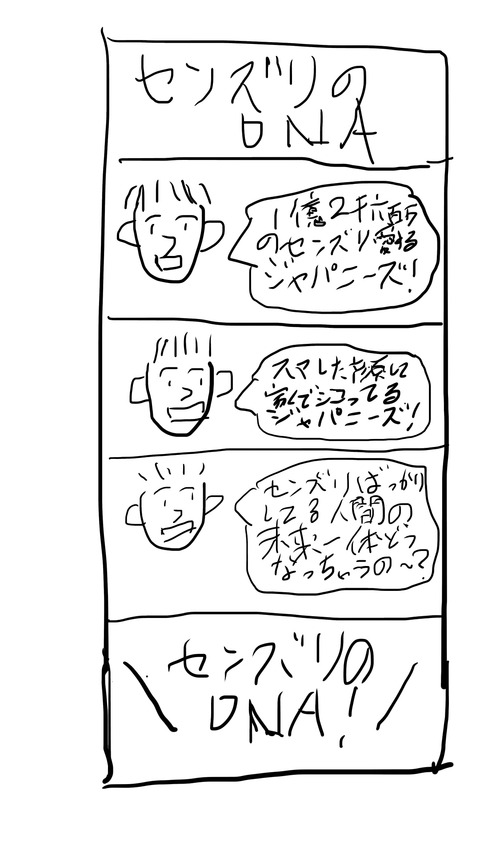 センズリの
DNA
1億2千六百万
のセンズリ愛する
ジャパニーズ!
スマした顔して
家でシコってる
ジャパニーズ!
センズリばっかり
してる人間の
未来一体どう
なっちゃうの〜?
センズリの
DNA!